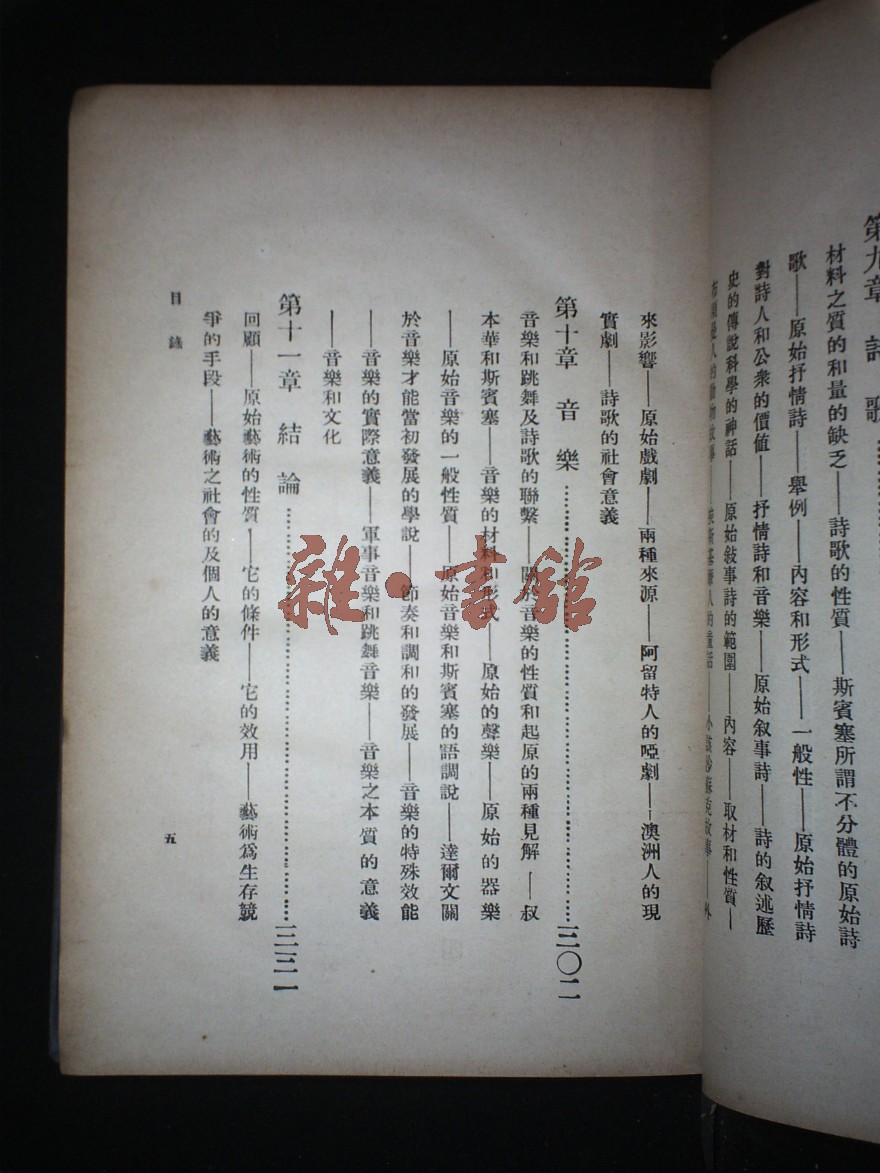 第九章 詩歌
材料之質的和量的缺乏——詩歌的性質——斯賓塞所謂不分體的原始詩
歌——原始抒情詩——舉例——內容和形式——一般性——原始抒情詩
對詩人和公衆的價值——抒情詩和音樂——原始敘事詩——詩的叙述歷
史的傳說科學的神話——原始敍事詩的範圍——內容——取材和性質——
人的動物故事——人的童話——故事——外
來影響——原始戲劇——兩種來源——阿留特人的啞劇——澳洲人的現
實劇——詩歌的社會意義
第十章 音樂……三〇二
音樂和跳舞及詩歌的聯繫——關於音樂的性質和起原的兩種見解——叔
本華和斯賓塞——音樂的材料和形式——原始的聲樂——原始的器樂
——原始音樂的一般性質——原始音樂和斯賓塞的語調說——達爾文關
於音樂才能當初發展的學說——節奏和調和的發展——音樂的特殊效能
——音樂的實際意義——軍事音樂和跳舞音樂——音樂之本質的意義
——音樂和文化
第十一章 結論……三三一
回顧——原始藝術的性質——它的條件——它的效用——藝術爲生存競
爭的手段——藝術之社會的及個人的意義
目錄
五
雜·書館